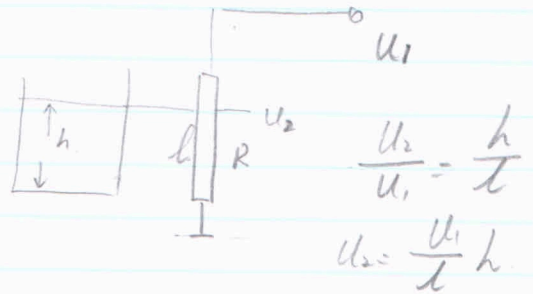 U1
h
l
R
U2
U2/U1 = h/l
U2 = U1/l h